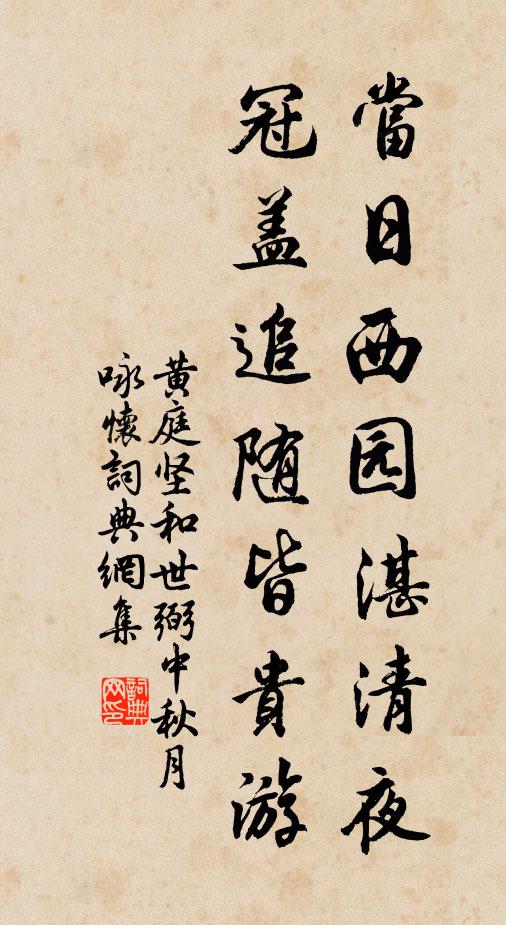 當日西园湛清夜
冠盖追随皆貴游
黄庭坚和世弼中秋月
咏懷詞典網集
詞典网印